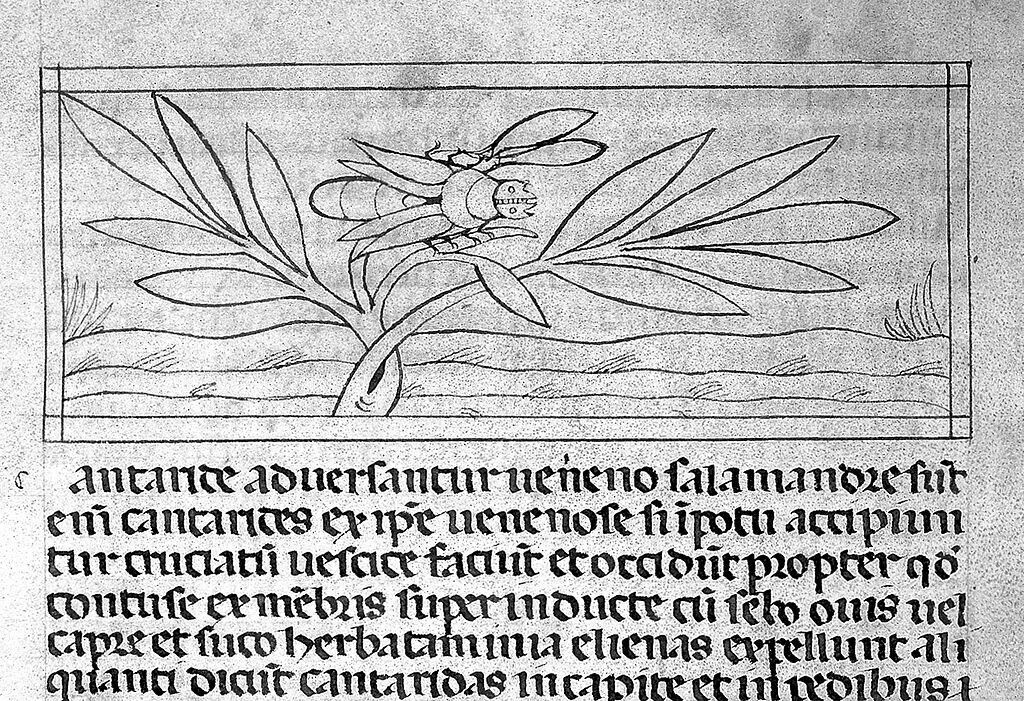 c antaride aduersantur ueneno salamandre sūt
enī cantarides ex ip̄e uenenose si īpotu accipiun
tur cruciatū uescice faciūt et occidūt propter qd̄
contuse ex mēbris superinducte cū sebo ouis uel
capre et suco herba taminia elienas expellunt ali
quanti dicūt cantaridas in capite et in pedibus